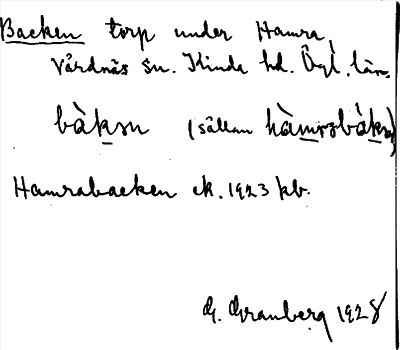 Backen torp under Hamra,
Vårdnäs sn. Kinda hd. Ögl. län.
bàksn (sällan hàmrsbáksn)
Hamrabacken ek. 1923 kb.
G. Granberg 1928